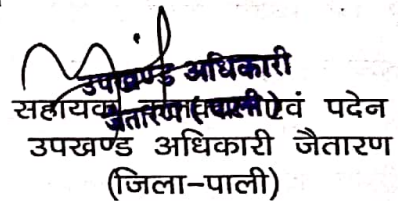 उपखण्ड अधिकारी
जैतारण (पाली)
सहायक एवं पदेन
उपखण्ड अधिकारी जैतारण
(जिला-पाली)